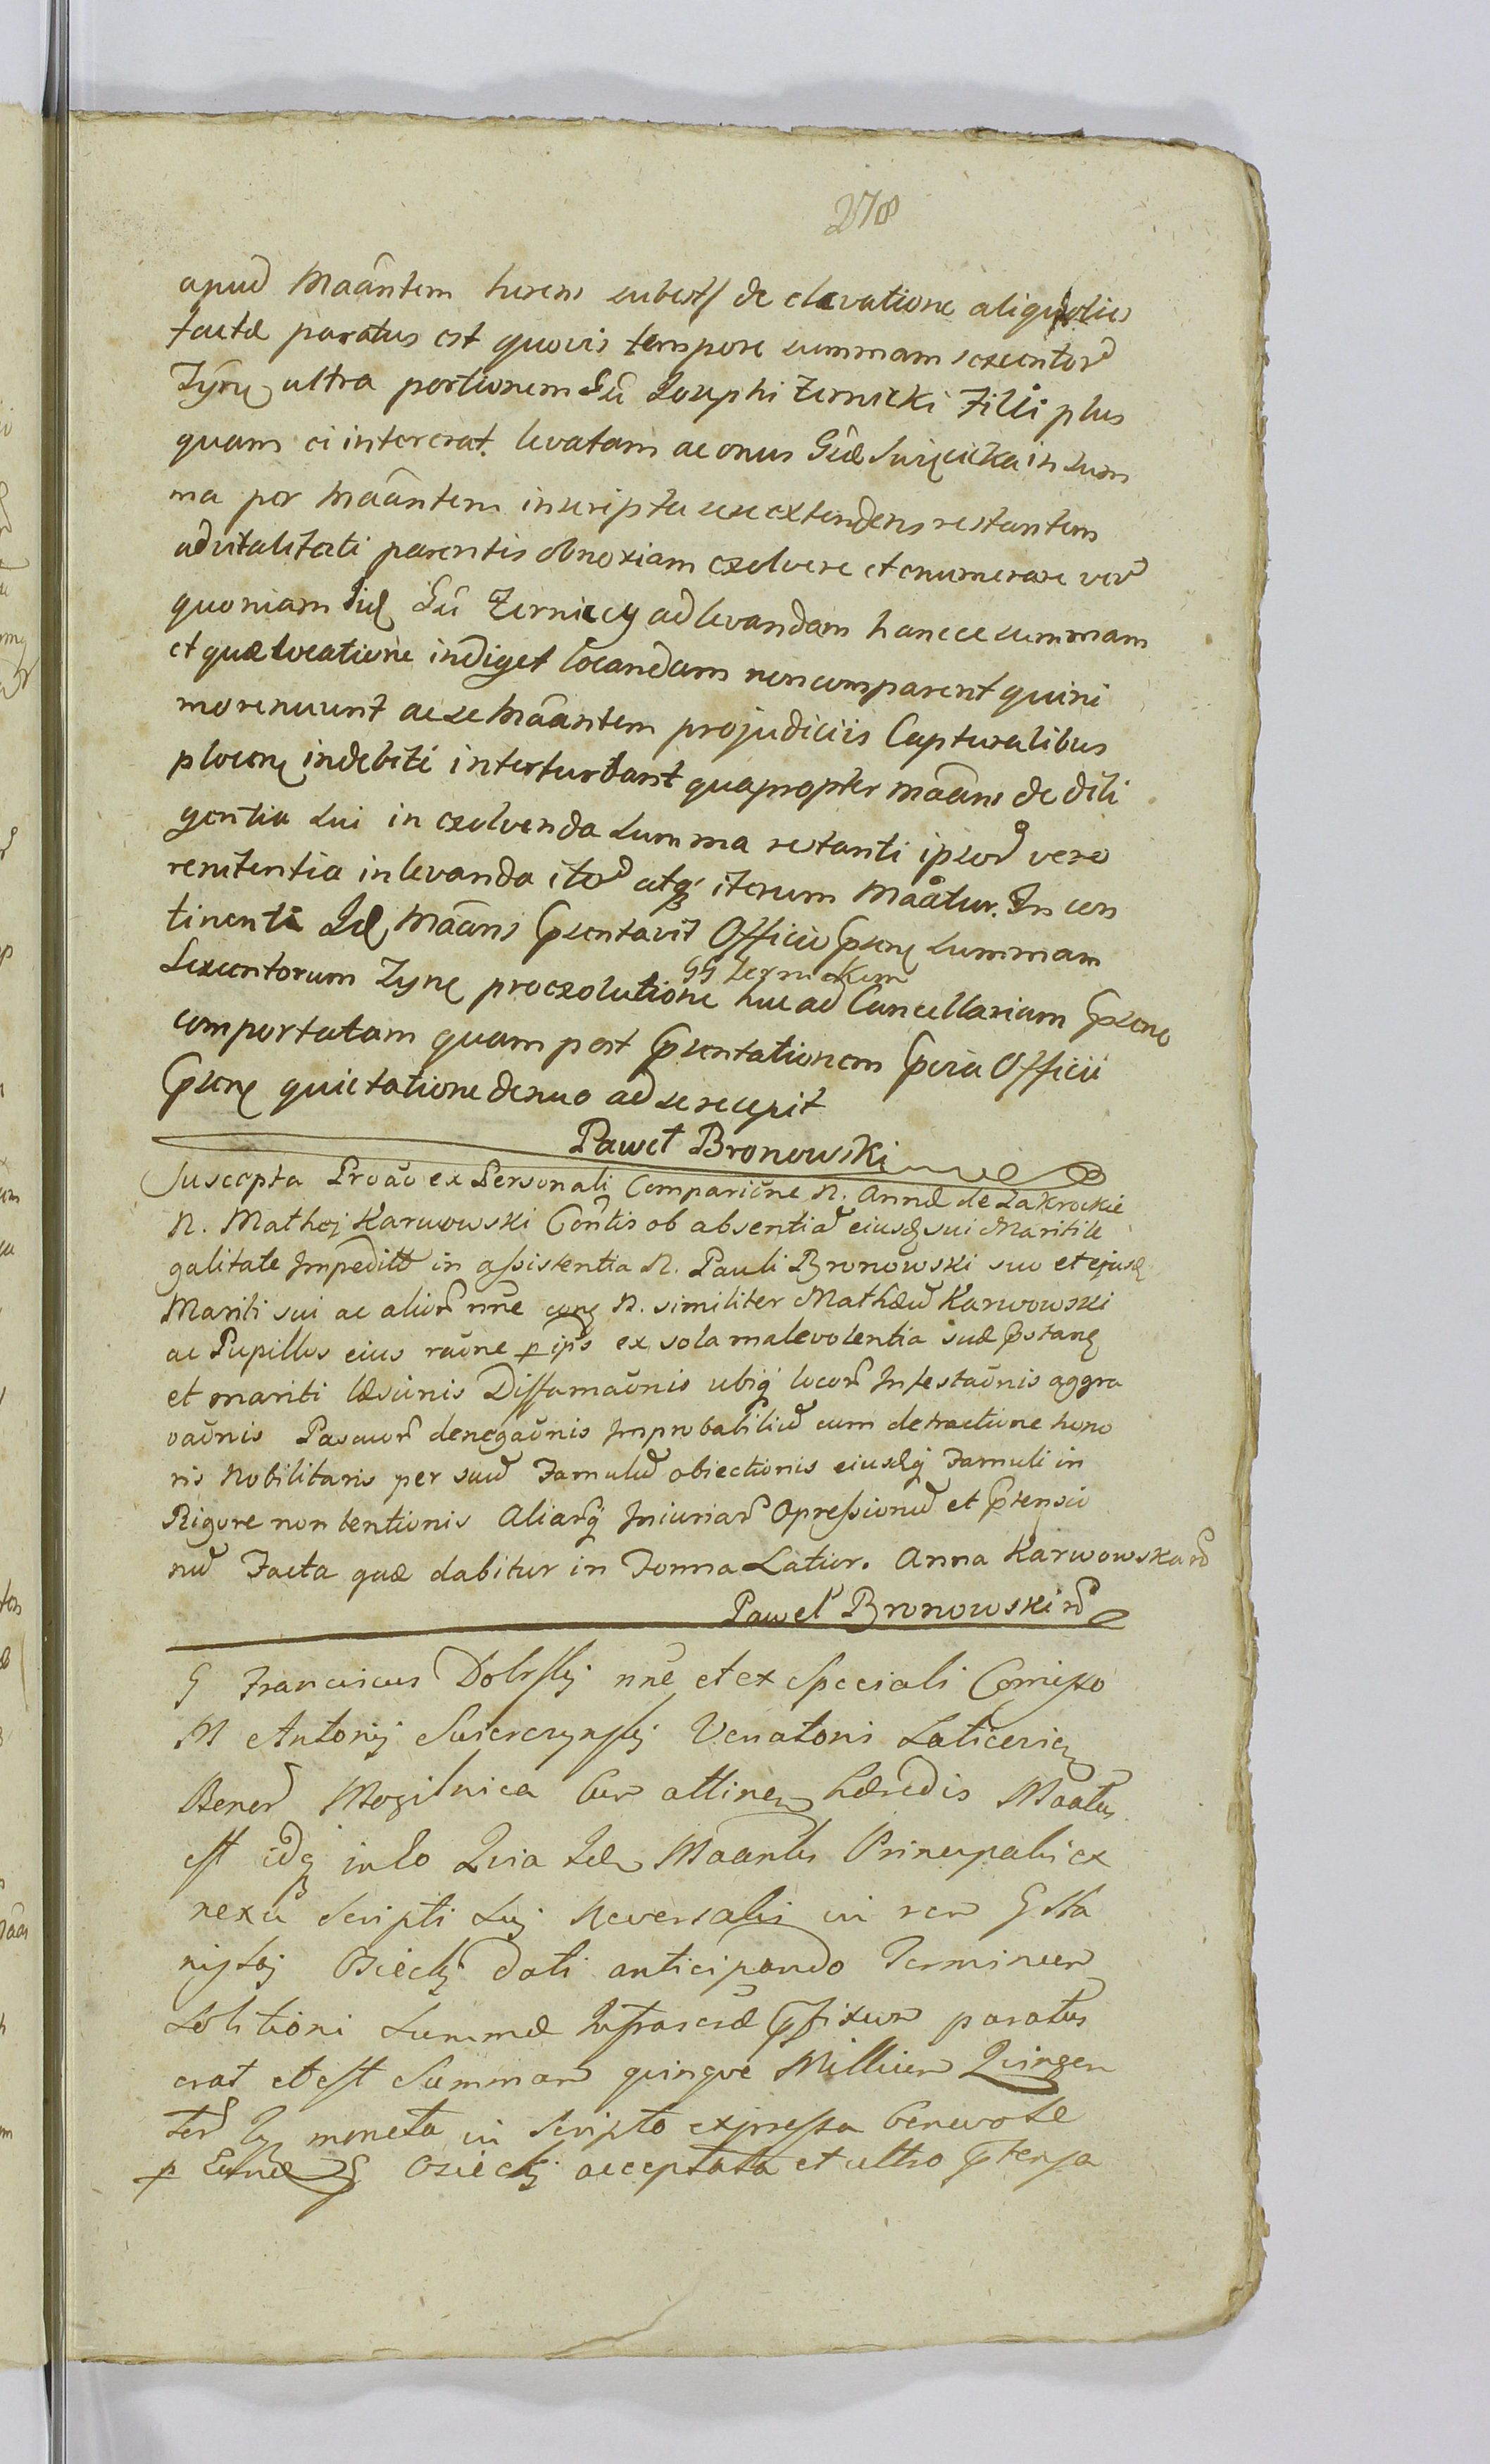 278
apud Maãntem herens subest de elevatione aliquoties
factæ paratus est quovis tempore summam sexcentor
Tÿnę ultra portionem Gũ Josephi Zernicki Filii plus
quam ei intererat levatam ac onus Gũæ Suięcicka in sum
ma per Maãntem inscripta sese extendens restantem
advitalitati parentis obnoxiam exolvere et enumerare ver
quoniam Iid Gũ Zerniccy ad levandam hancce summam
et quæ locatione indiget locandam non comparent quini
mo renuunt ac se Maãntem projudiciis Capturalibus
plocenę indebite interturbant quapropter Maãns de dili
gentia sui in exolvenda summa restanti ipsor vero
renitentia in levanda iter atq iterum Maãtur. In con
tinenti Id Maãns Pñsentavit Officio Pñsenę summam
GG Zernickim
Sexcentorum Tynę pro exolutione huc ad Cancellariam Pñsenę
comportatam quam post Pñsentationem Pñvia Officii
Pñsenę quietatione denuo ad se recepit
Paweł Bronowski
Suscepta Proão ex Personali Comparitne N. Annæ de Zakrockie
N. Mathej Karwowski Contis ob absentia eiusd sui Mariti le
galitate Impediti in assistentia N. Pauli Bronowski suo et ejusd
Mariti sui ac alior nñe conę N. similiter Mathæu Karwowski
ac Pupillos eius raõne p ips ex sola malevolentia suæ Pñstanę
et mariti læsionis Diffamaõnis ubiq locor Infestaõnis aggra
vaõnis Pascuor denegaõnis Improbabiliu cum detractione hono
ris Nobilitaris per suu Famulu obiectionis eiusdq Famuli in
Rigore non tentionis Aliarq Iniuriar Opressionu et Pñtensio
nu Facta quæ dabitur in Forma Latior. Anna Karwowska
Paweł Bronowski
G Franciscus Dobrskj nñe et ex speciali Comisso
M Antonij Swierczynskj Venatoris Laticevię
Bonor Mogilnica cum attinen hæredis Maatus
est idq in eo Quia Id Maantis Principalis ex
nexu scripti suj Reversalis in rem G Sta
nislaj Osieckj dati anticipando Terminum
solutioni summæ Infrascræ Pñfixum paratus
erat et est summam quinque Millium Quingen
tor Ty moneta in scripto expressa benevole
p Eund G Osieckj acceptata et ultro Pñtensa